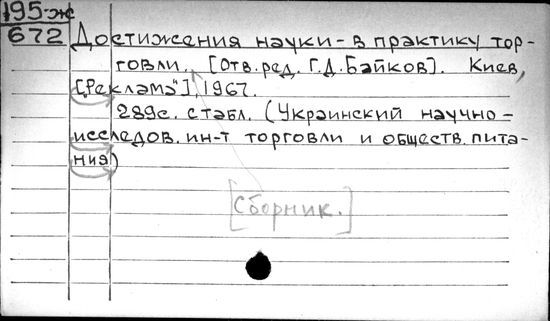 195-ж
672
Достижения науки - в практику тор-
говли. [Отв. ред. Г.Д. Байков]. Киев,
["Реклама"], 1967.
289с. с табл. (Украинский научно-
исследов. ин-т торговли и обществ. пита-
ния)
[Сборник.]